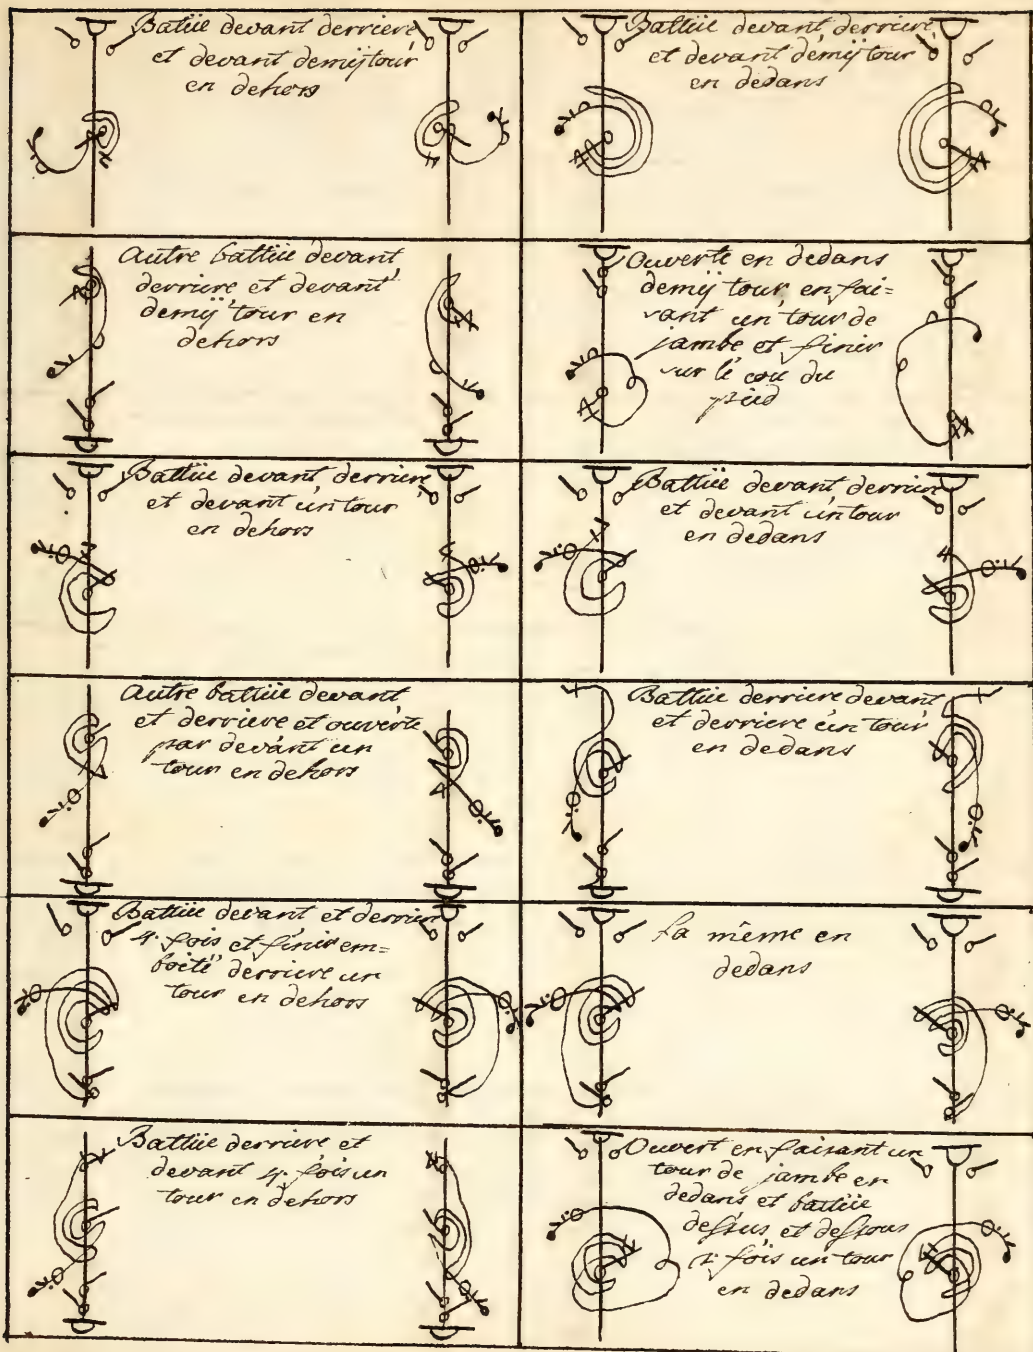 Battüe devant derriere
et devant demÿ tour
en dehors
Battüe devant derriere
et devant demÿ tour
en dedans
Autre battüe devant
derriere et devant
demÿ tour en
dehors
Ouverte en dedans
demÿ tour en fai=
sant un tour de
jambe et finir
sur le cou du
pied
Battüe devant derriere
et devant un tour
en dehors
Battüe devant derriere
et devant un tour
en dedans
Autre battüe devant
et derriere et ouverte
par devant un
tour en dehors
Battüe derriere devant
et derriere un tour
en dedans
Battüe devant et derriere
4. fois et finir em=
boîté derriere un
tour en dehors
La même en
dedans
Battüe derriere et
devant 4. fois un
tour en dehors
Ouvert en faisant un
tour de jambe en
dedans et battüe
dessus et dessous
fois un tour
en dedans